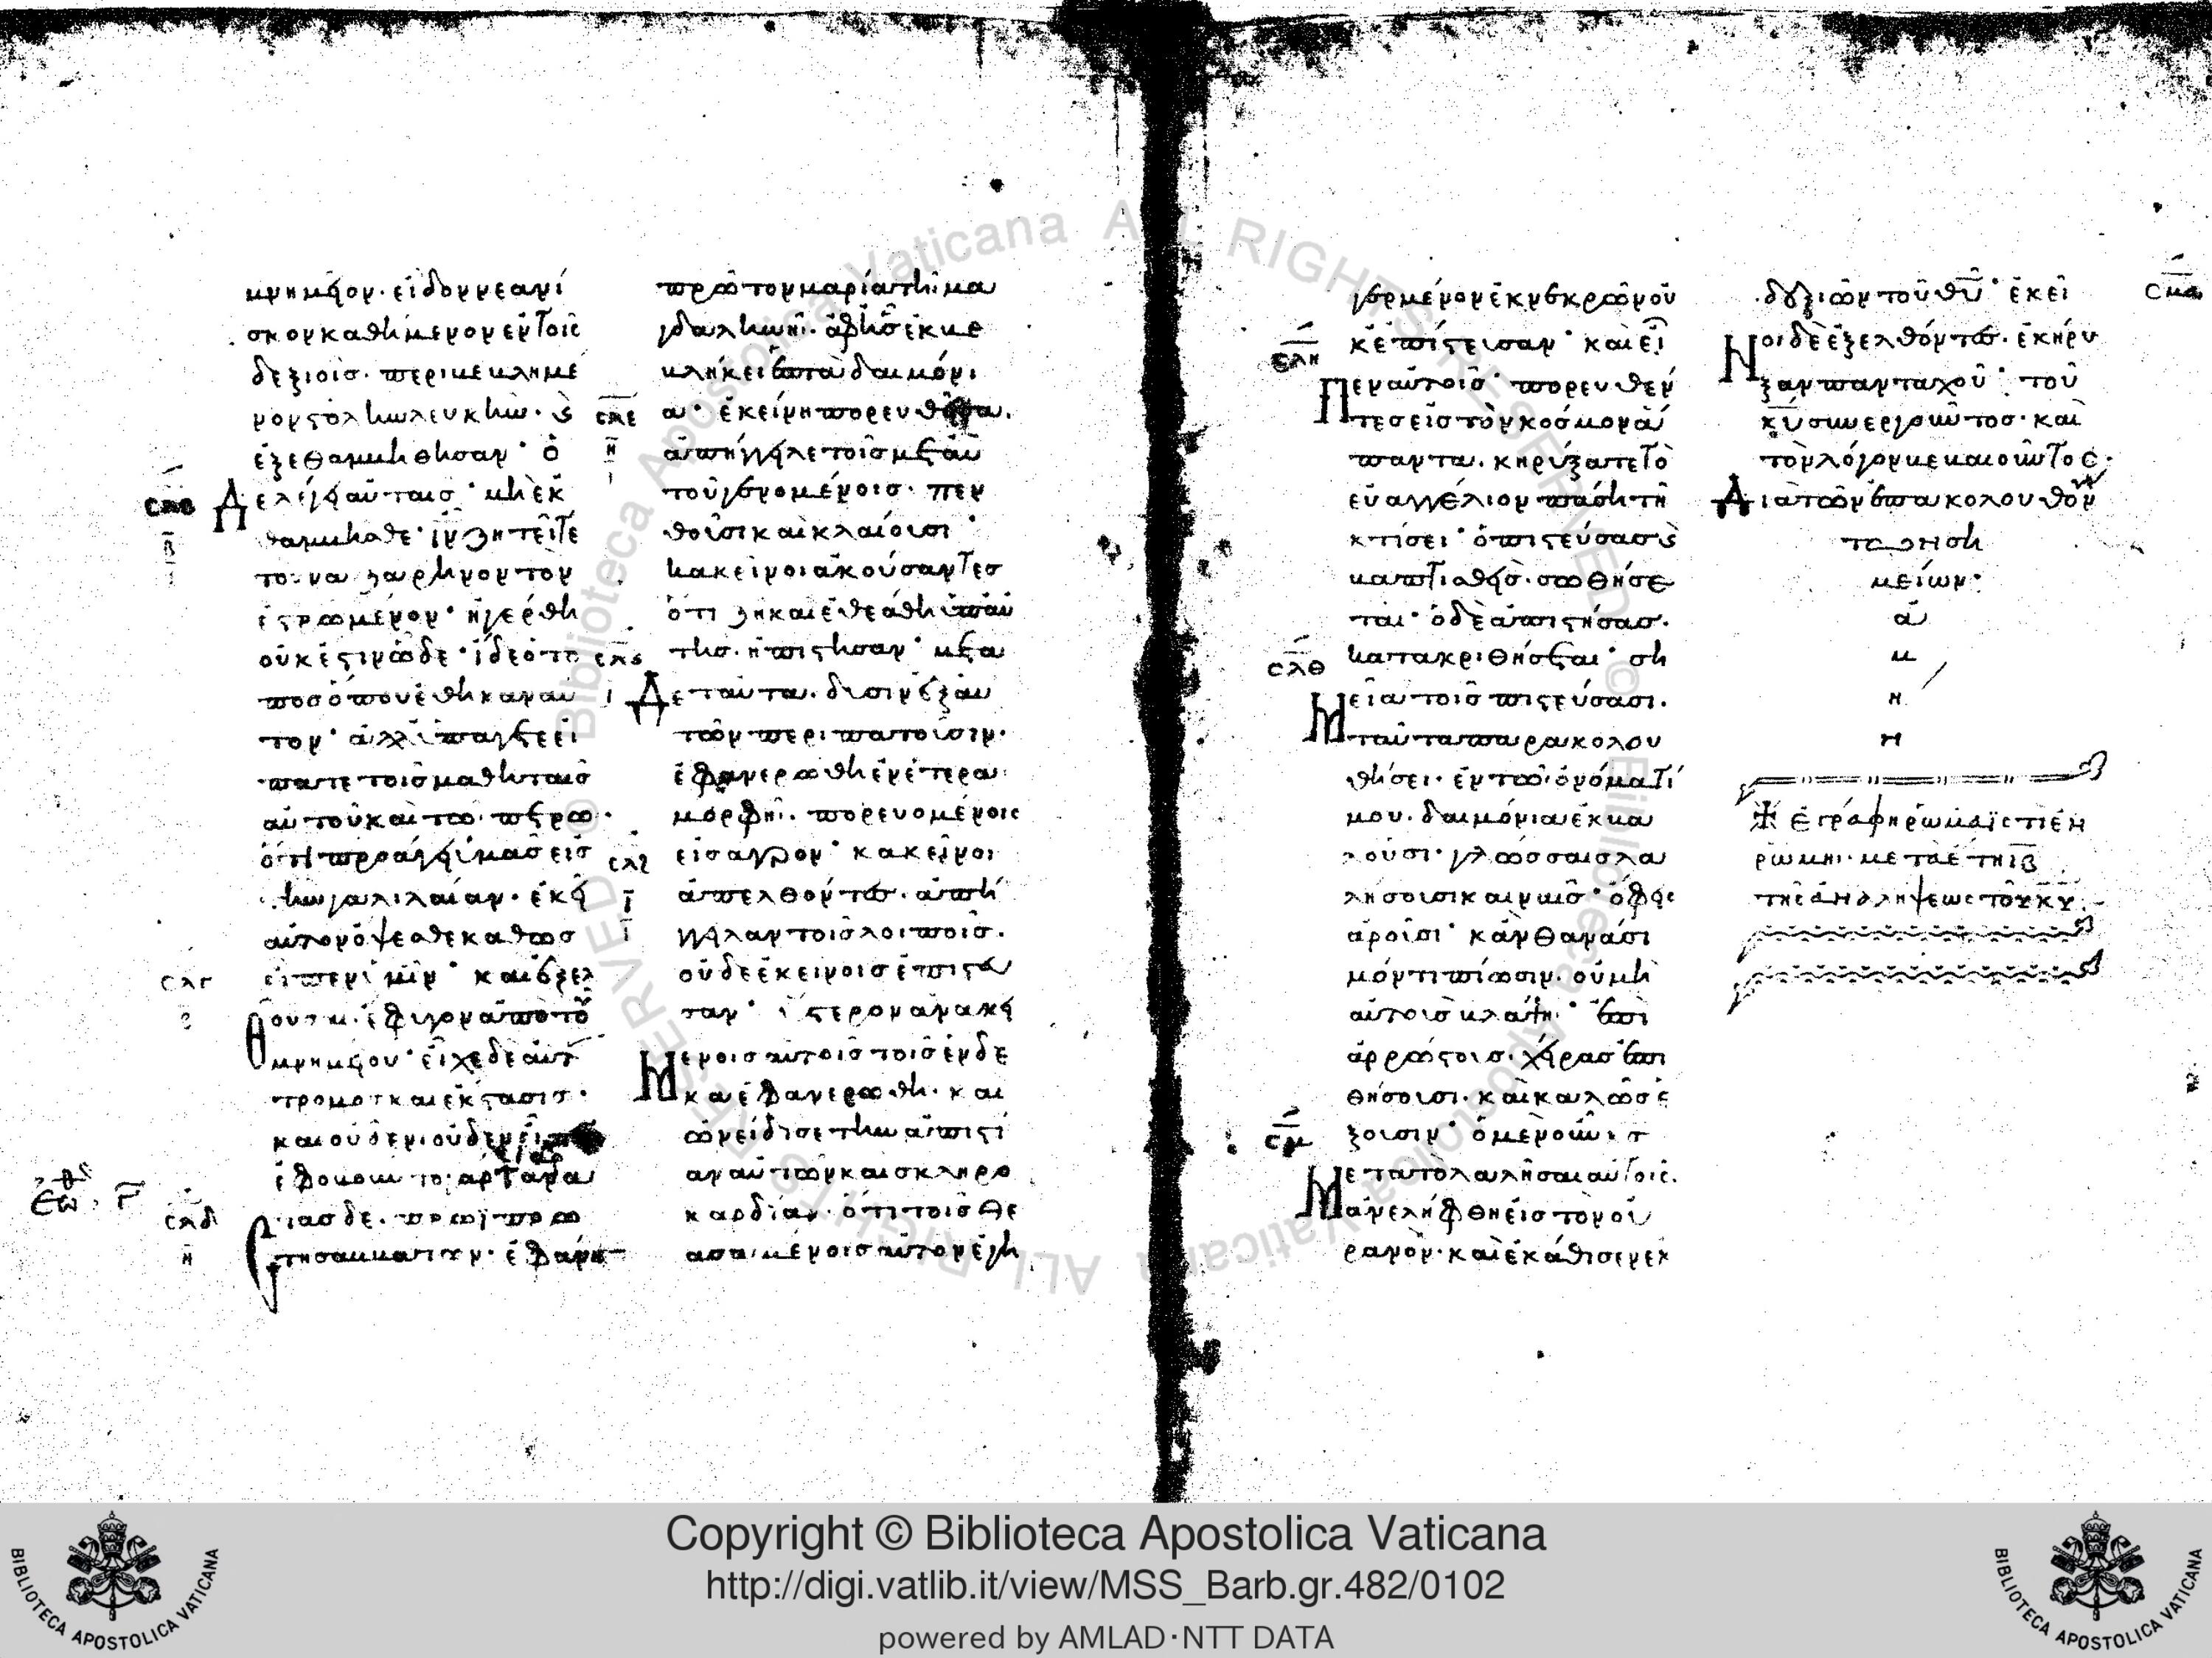 μνημεῖον· εἶδον νεανί
σκον καθήμενον ἐν τοῖς
δεξιοῖς· περιβεβλημέ
νον στολὴν λευκήν· κ
ἐξεθαμβήθησαν· ὁ
Δὲ λέγει αὐταῖς· μὴ ἐκ
θαμβεῖσθε· ἰν ζητεῖτε
τὸν ναζαρηνὸν τὸν
ἐσταυρωμένον· ἠγέρθη
οὐκ ἔστιν ὧδε· ἴδε ὁ τό
πος ὅπου ἔθηκαν αὐ
τόν· ἀλλ' ὑπάγετε εἴ
πατε τοῖς μαθηταῖς
αὐτοῦ καὶ τῷ πέτρω·
ὅτι προάγει ὑμᾶς εἰς
τὴν γαλιλαίαν· ἐκεῖ
αὐτὸν ὄψεσθε καθὼς
εἶπεν ὑμῖν· καὶ ἐξελ
θοῦσαι ἔφυγον ἀπὸ τοῦ
μνημείου· εἶχε δὲ αὐτ
τρόμος καὶ ἔκστασις·
καὶ οὐδενὶ οὐδὲν εἶπον
ἐφοβοῦντο γάρ
Ἀναστὰς δὲ· πρωῒ πρώ
τη σαββάτων· ἐφάνη
σλβ
β
σλγ
σλδ
η
ἑω· γ
πρῶτον μαρία τῆ μα
γδαληνῆ· ἀφ' ἧς ἐκβε
βλήκει ἑπτὰ δαιμόνι
α· ἐκείνη πορευθεῖσα·
ἀπήγγειλε τοῖς μετ' αὐ
τοῦ γενομένοις· πεν
θοῦσι καὶ κλαίουσι·
κακεῖνοι ἀκούσαντες
ὅτι ζῆ καὶ ἐθεάθη ὑπ' αὐ
τῆς· ἠπίστησαν· μετὰ
Δὲ ταῦτα· δυσὶν ἐξ αὐ
τῶν περιπατοῦσιν·
ἐφανερώθη ἐν ἑτέρα
μορφῆ· πορευομένοις
εἰς ἀγρόν· κακεῖνοι
ἀπελθόντες· ἀπήγ
γειλαν τοῖς λοιποῖς·
οὐδὲ ἐκείνοις ἐπίστευ
σαν· ὕστερον ἀνακει
Μένοις αὐτοῖς τοῖς ἕνδε
κα ἐφανερώθη· και
ὠνείδισε τὴν ἀπιστί
αν αὐτῶν καὶ σκληρο
καρδίαν· ὅτι τοῖς θε
ασαμένοις αὐτὸν ἐγη
σλε
η
σλς
ι
σλζ
ι
γερμένον ἐκ νεκρῶν οὐ
κ ἐπίστευσαν· καὶ εἶ
Πεν αὐτοῖς· πορευθέν
τες εἰς τὸν κόσμον ἅ
παντα· κηρύξατε τὸ
εὐαγγέλιον πάση τῆ
κτίσει· ὁ πιστεύσας κ
βαπτισθεὶς· σωθήσε
ται· ὁ δὲ ἀπιστήσας·
κατακριθήσεται· ση
Μεῖα τοῖς πιστεύσασι·
ταῦτα παρακολου
θήσει· ἐν τῶ ὀνόματί
μου· δαιμόνια ἐκβα
λοῦσι· γλώσσαις λα
λήσουσι καιναῖς· ὄφεις
ἀροῦσι· κἂν θανάσι
μόν τι πίωσιν· οὐ μὴ
αὐτοὺς βλάψη· ἐπὶ
ἀρρώστους· χεῖρας ἐπι
θήσουσι· καὶ καλῶς ἕ
ξουσιν· ὁ μὲν οὖν κσ
Μετὰ τὸ λαλῆσαι αὐτοῖς·
ἀνελήφθη εἰς τὸν οὐ
ρανὸν· καὶ ἐκάθισεν ἐκ
σλη
σλθ
σμ
δεξιῶν τοῦ θυ· ἐκεῖ
Νοι δὲ ἐξελθόντες· ἐκήρυ
ξαν πανταχοῦ· τοῦ
κυ συνεργοῦντος· καὶ
τὸν λόγον βεβαιοῦντος·
Διὰ τῶν ἐπακολουθούν
των ση
μείων·
ἀ
μ
ή
ν
σμα
✠ ἐγράφη ῥωμαϊστὶ ἐν
ῥώμηι· μετὰ ἔτη ιβ
τῆς ἀναλήψεως τοῦ κυ·
Copyright © Biblioteca Apostolica Vaticana
http://digi.vatlib.it/view/MSS_Barb.gr.482/0102
powered by AMLAD·NTT DATA
BIBLIOTECA APOSTOLICA VATICANA
BIBLIOTECA APOSTOLICA VATICANA